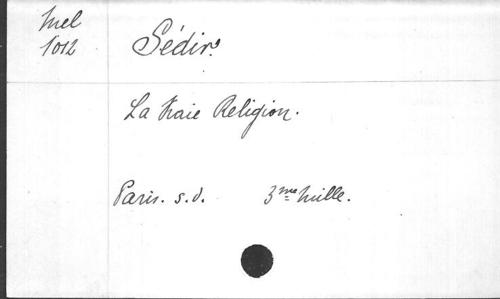 Mel
1012
Sédir.
La Vraie Religion.
Paris. s.d. 3me mille.